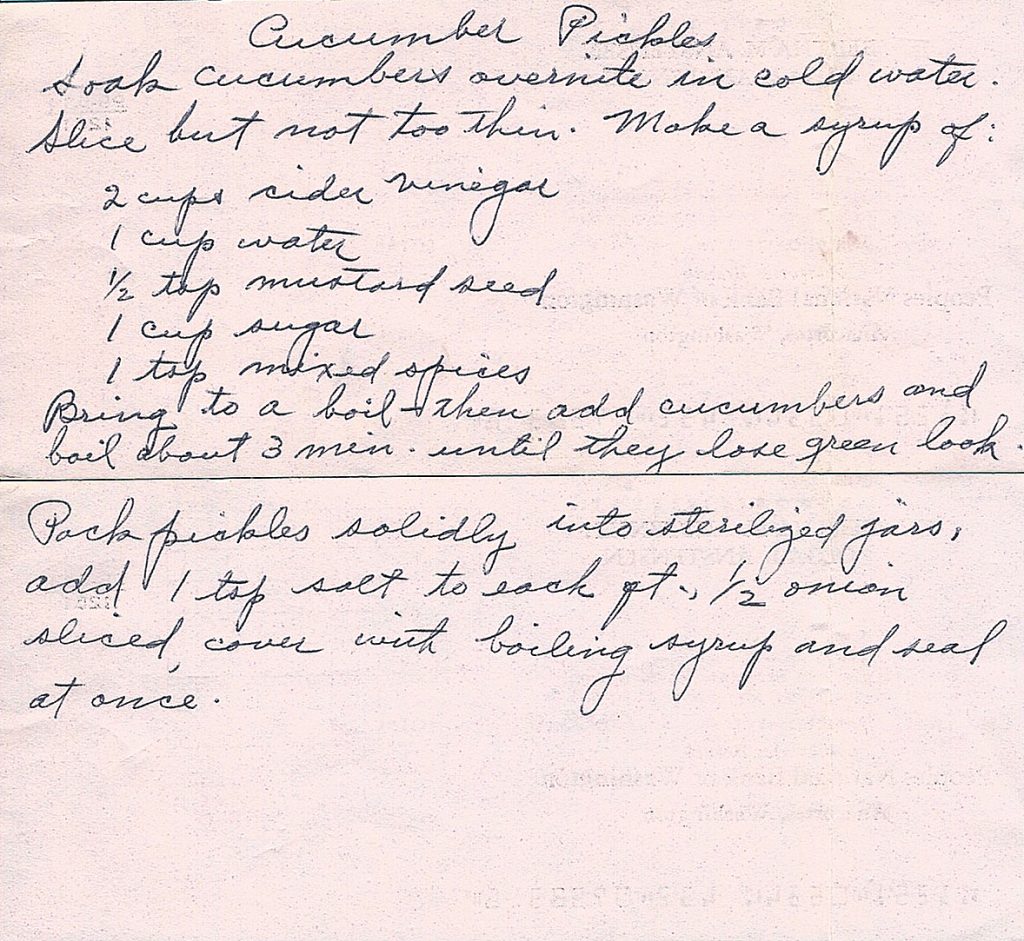 Cucumber Pickles
Soak cucumbers overnite in cold water.
Slice but not too thin. Make a syrup of:
2 cups cider vinegar
1 cup water
1/2 tsp mustard seed
1 cup sugar
1 tsp mixed spices
Bring to a boil - then add cucumbers and
boil about 3 min. until they lose green look.
Pack pickles solidly into sterilized jars,
add 1 tsp salt to each qt., 1/2 onion
sliced, cover with boiling syrup and seal
at once.